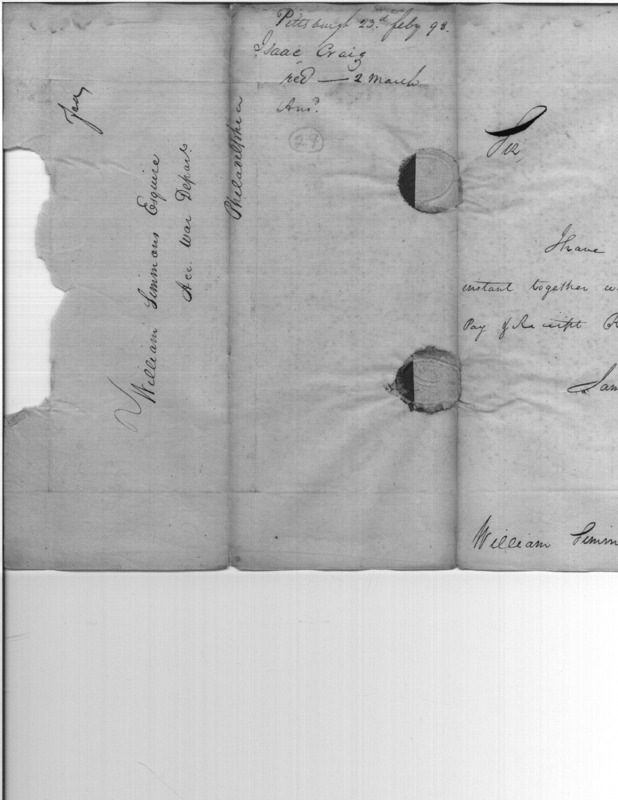 Pittsburgh 23.d feby 98.
Isaac Craig
recd — 2 March
Ansd.
24
William Simmons Esquire
Acc. War Depart.
Philadelphia
Sir
I have
instant together
Pay & Receipt
I am
William Simm